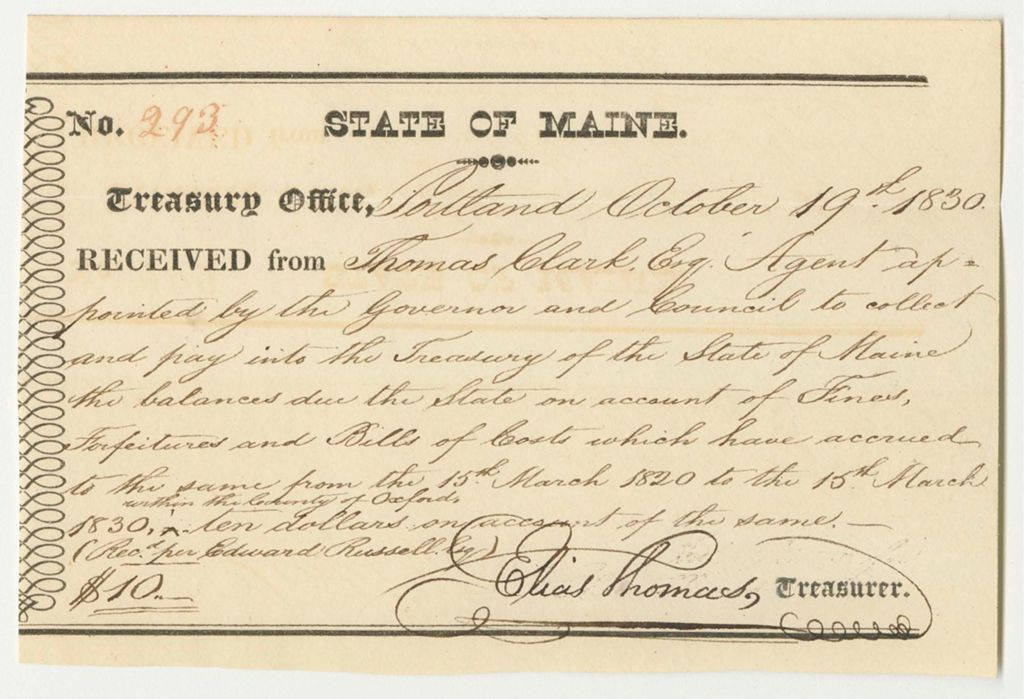 No. 293 STATE OF MAINE.
Treasury Office, Portland October 19th. 1830.
RECEIVED from Thomas Clark. Esq. Agent ap=
pointed by the Governor and Council to collect
and pay into the Treasury of the State of Maine
the balances due the State on account of Fines,
Forfeitures and Bills of Costs which have accrued
to the same from the 15th. March 1820 to the 15th. March
within the County of Oxford,
1830, ^ ten dollars on account of the same. —
(Recd. per Edward Russell. Esq)
$10.—
Elias Thomas, Treasurer.